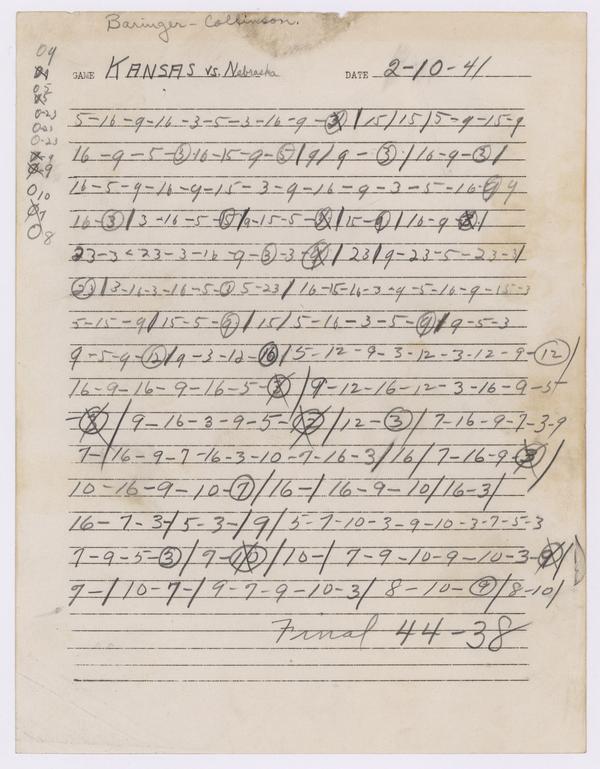 Baringer - Collinson.
GAME KANSAS vs. Nebraska DATE 2-10-41
04
05
0-23
0-23
010
08
5-16-9-16-3-5-3-16-9-3/15/15/5-9-15-9
16-9-5-3-16-15-9-5/9/9-3/16-9-3/
16-5-9-16-9-15-3-9-16-9-3-5-16-9
16-3/3-16-5-5/9-15-5-3/15-9/16-9-3/
23-3-23-3-16-9-3-3-9/23/9-23-5-23-3/
23/3-16-3-16-5-3 5-23/16-15-16-3-9-5-16-9-15-3
5-15-9/15-5-9/15/5-16-3-5-9/9-5-3
9-5-9-12/9-3-12-16/5-12-9-3-12-3-12-9-12/
16-9-16-9-16-5-3/9-12-16-12-3-16-9-5
-3/9-16-3-9-5-12/12-3/7-16-9-7-3-9
7-/16-9-7-16-3-10-7-16-3/16/7-16-9-3/
10-16-9-10-7/16-/16-9-10/16-3/
16-7-3/5-3-/9/5-7-10-3-9-10-3-7-5-3
7-9-5-3/9-10/10-/7-9-10-9-10-3-9/
9-/10-7-/9-7-9-10-3/8-10-9/8-10/
Final 44-38